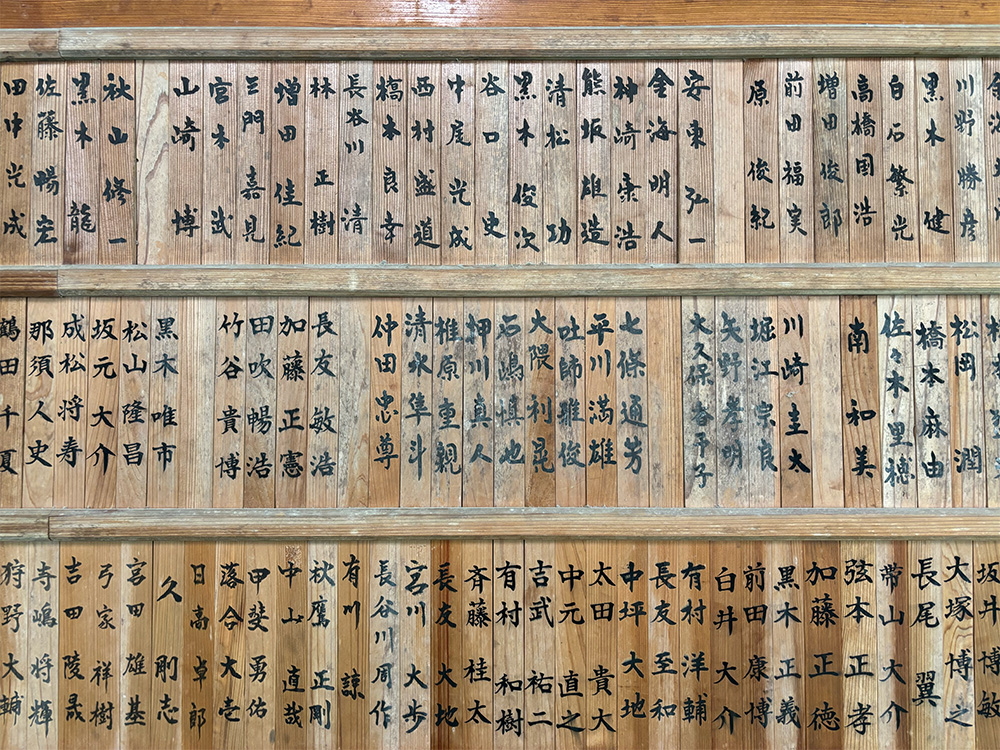 川野勝彦
黒木健
白石繁光
高橋国浩
増田俊郎
前田福実
原俊紀
安東弘一
金海明人
神崎康浩
熊坂雄造
清松功
黒木俊次
谷口史
中尾光成
西村盛道
橋本良幸
長谷川清
林正樹
増田佳紀
三門嘉見
宮本武
山崎博
秋山修一
黒木龍
佐藤暢宏
田中光成
松岡潤
橋本麻由
佐々木里穂
南和美
川崎圭太
堀江宗良
矢野孝明
大久保
七條通芳
平川満雄
吐師雅俊
大隈利晃
石嶋慎也
押川真人
椎原重親
清水隼斗
仲田忠尊
長友敏浩
加藤正憲
田吹暢浩
竹谷貴博
黒木唯市
松山隆昌
坂元大介
成松将寿
那須人史
鶴田千夏
坂井博敏
大塚博之
長尾翼
帯山大介
弦本正孝
加藤正徳
黒木正義
前田康博
白井大介
有村洋輔
長友至和
中坪大地
太田貴大
中元直之
吉武祐二
有村和樹
斉藤桂太
長友大地
宮川大歩
長谷川周作
有川諒
秋鷹正剛
中山直哉
甲斐勇佑
落合大壱
日高卓郎
久剛志
宮田雄基
弓家祥樹
吉田陵晟
寺嶋将輝
狩野大輔